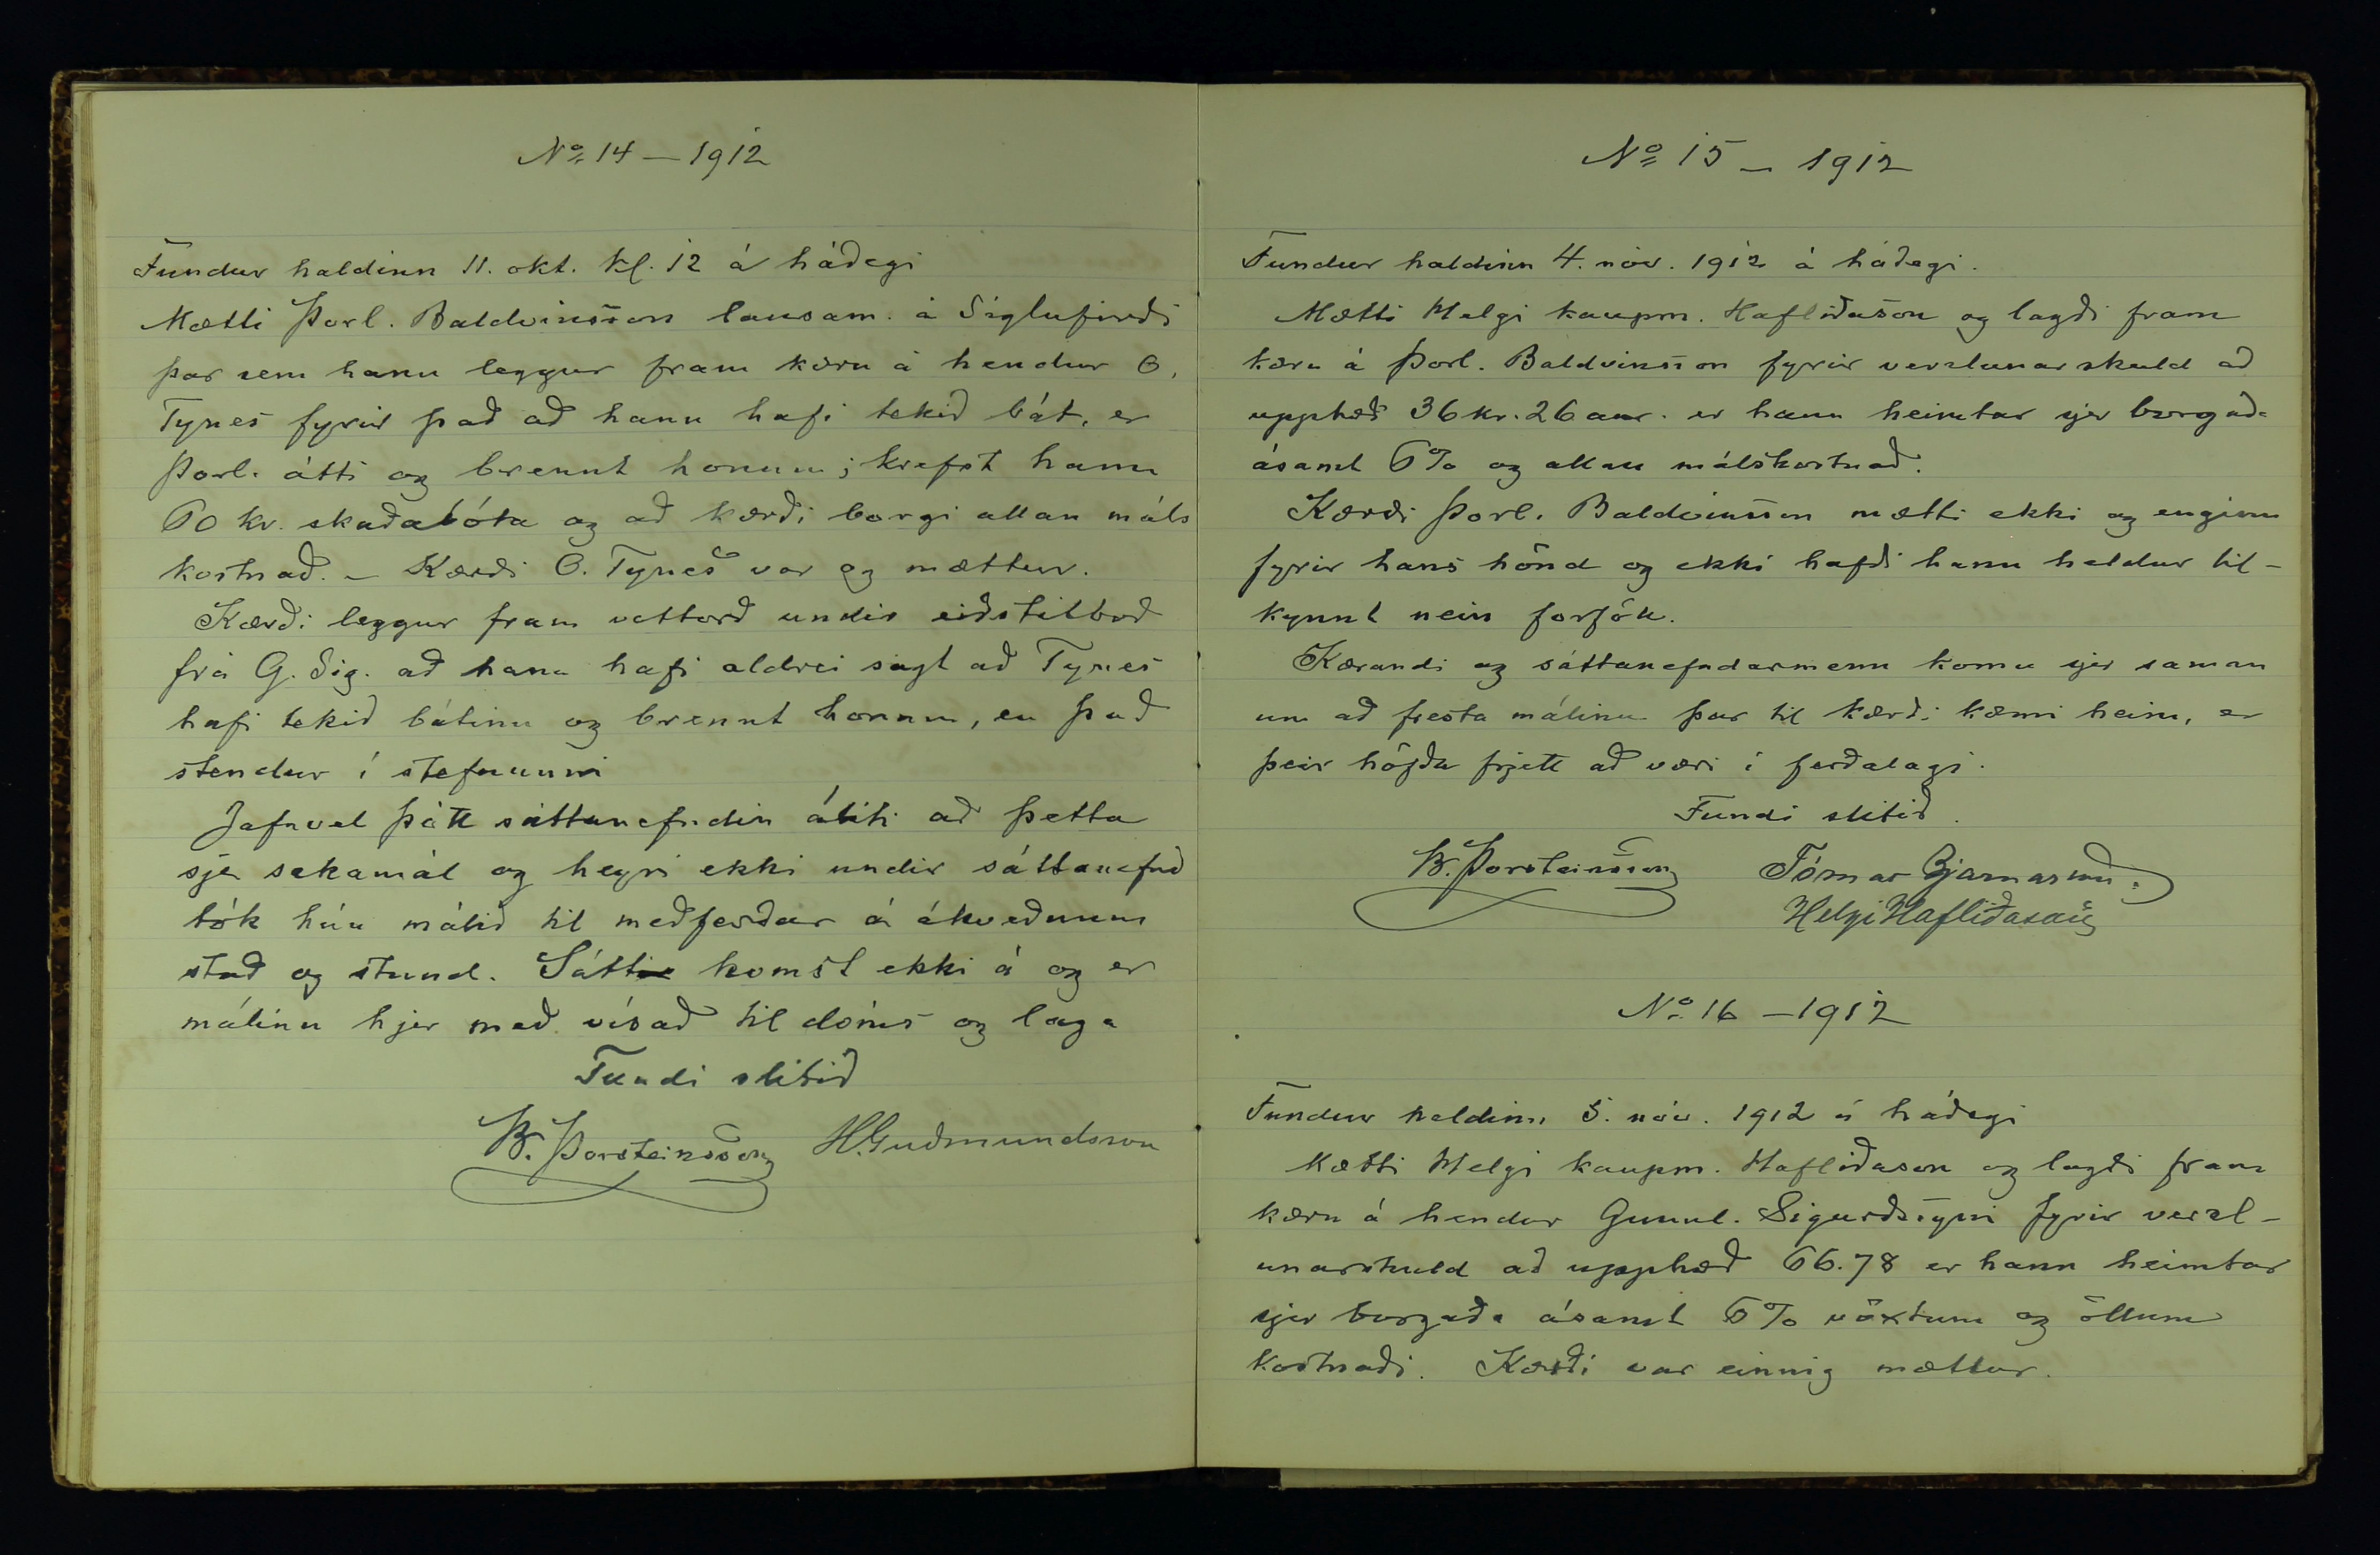 No. 14 — 1912
Fundur haldinn 11. okt. kl. 12 á hádegi
Mætti Þorl. Baldvinsson lausam. á Siglufirði
þar sem hann leggur fram kæru á hendur O.
Tynes fyrir það að hann hafi tekið bát, er
Þorl. átti og brennt honum; krefst hann
60 kr. skaðabóta og að kærði borgi allan máls
kostnað. – Kærði O. Tynes var og mættur.
Kærði leggur fram vottorð undir eiðstilboð
frá G. Sig. að hann hafi aldrei sagt að Tynes
hafi tekið bátinn og brennt honum, en það
stendur í stefnunni
Jafnvel þótt sáttanefndin áliti að þetta
sje sakamál og heyri ekki undir sáttanefnd
tók hún málið til meðferðar á ákveðnum
stað og stund. Sátt komst ekki á og er
málinu hjer með vísað til dóms og laga
Fundi slitið
B. Þorsteinsson H. Guðmundsson
No 15 – 1912
Fundur haldinn 4. nóv. 1912 á hádegi.
Mætti Helgi kaupm. Hafliðason og lagði fram
kæru á Þorl. Baldvinsson fyrir verzlunarskuld að
upphæð 36 kr. 26 aur. er hann heimtar sjer borgaða
ásamt 6% og allan málskostnað.
Kærði Þorl. Baldvinsson mætti ekki og enginn
fyrir hans hönd og ekki hafði hann heldur til-
kynnt nein forföll.
Kærandi og sáttanefndarmenn komu sjer saman
um að fresta málinu þar til kærði kæmi heim, er
þeir höfðu frjett að væri í ferðalagi.
Fundi slitið.
B. Þorsteinsson Tómas Bjarnason.
Helgi Hafliðason
No. 16 – 1912
Fundur haldinn 5. nóv. 1912 á hádegi
Mætti Helgi kaupm. Hafliðason og lagði fram
kæru á hendur Gunnl. Sigurðssyni fyrir verzl-
unarskuld að upphæð 66.78 er hann heimtar
sjer borgaða ásamt 6% vöxtum og öllum
kostnaði. Kærði var einnig mættur.